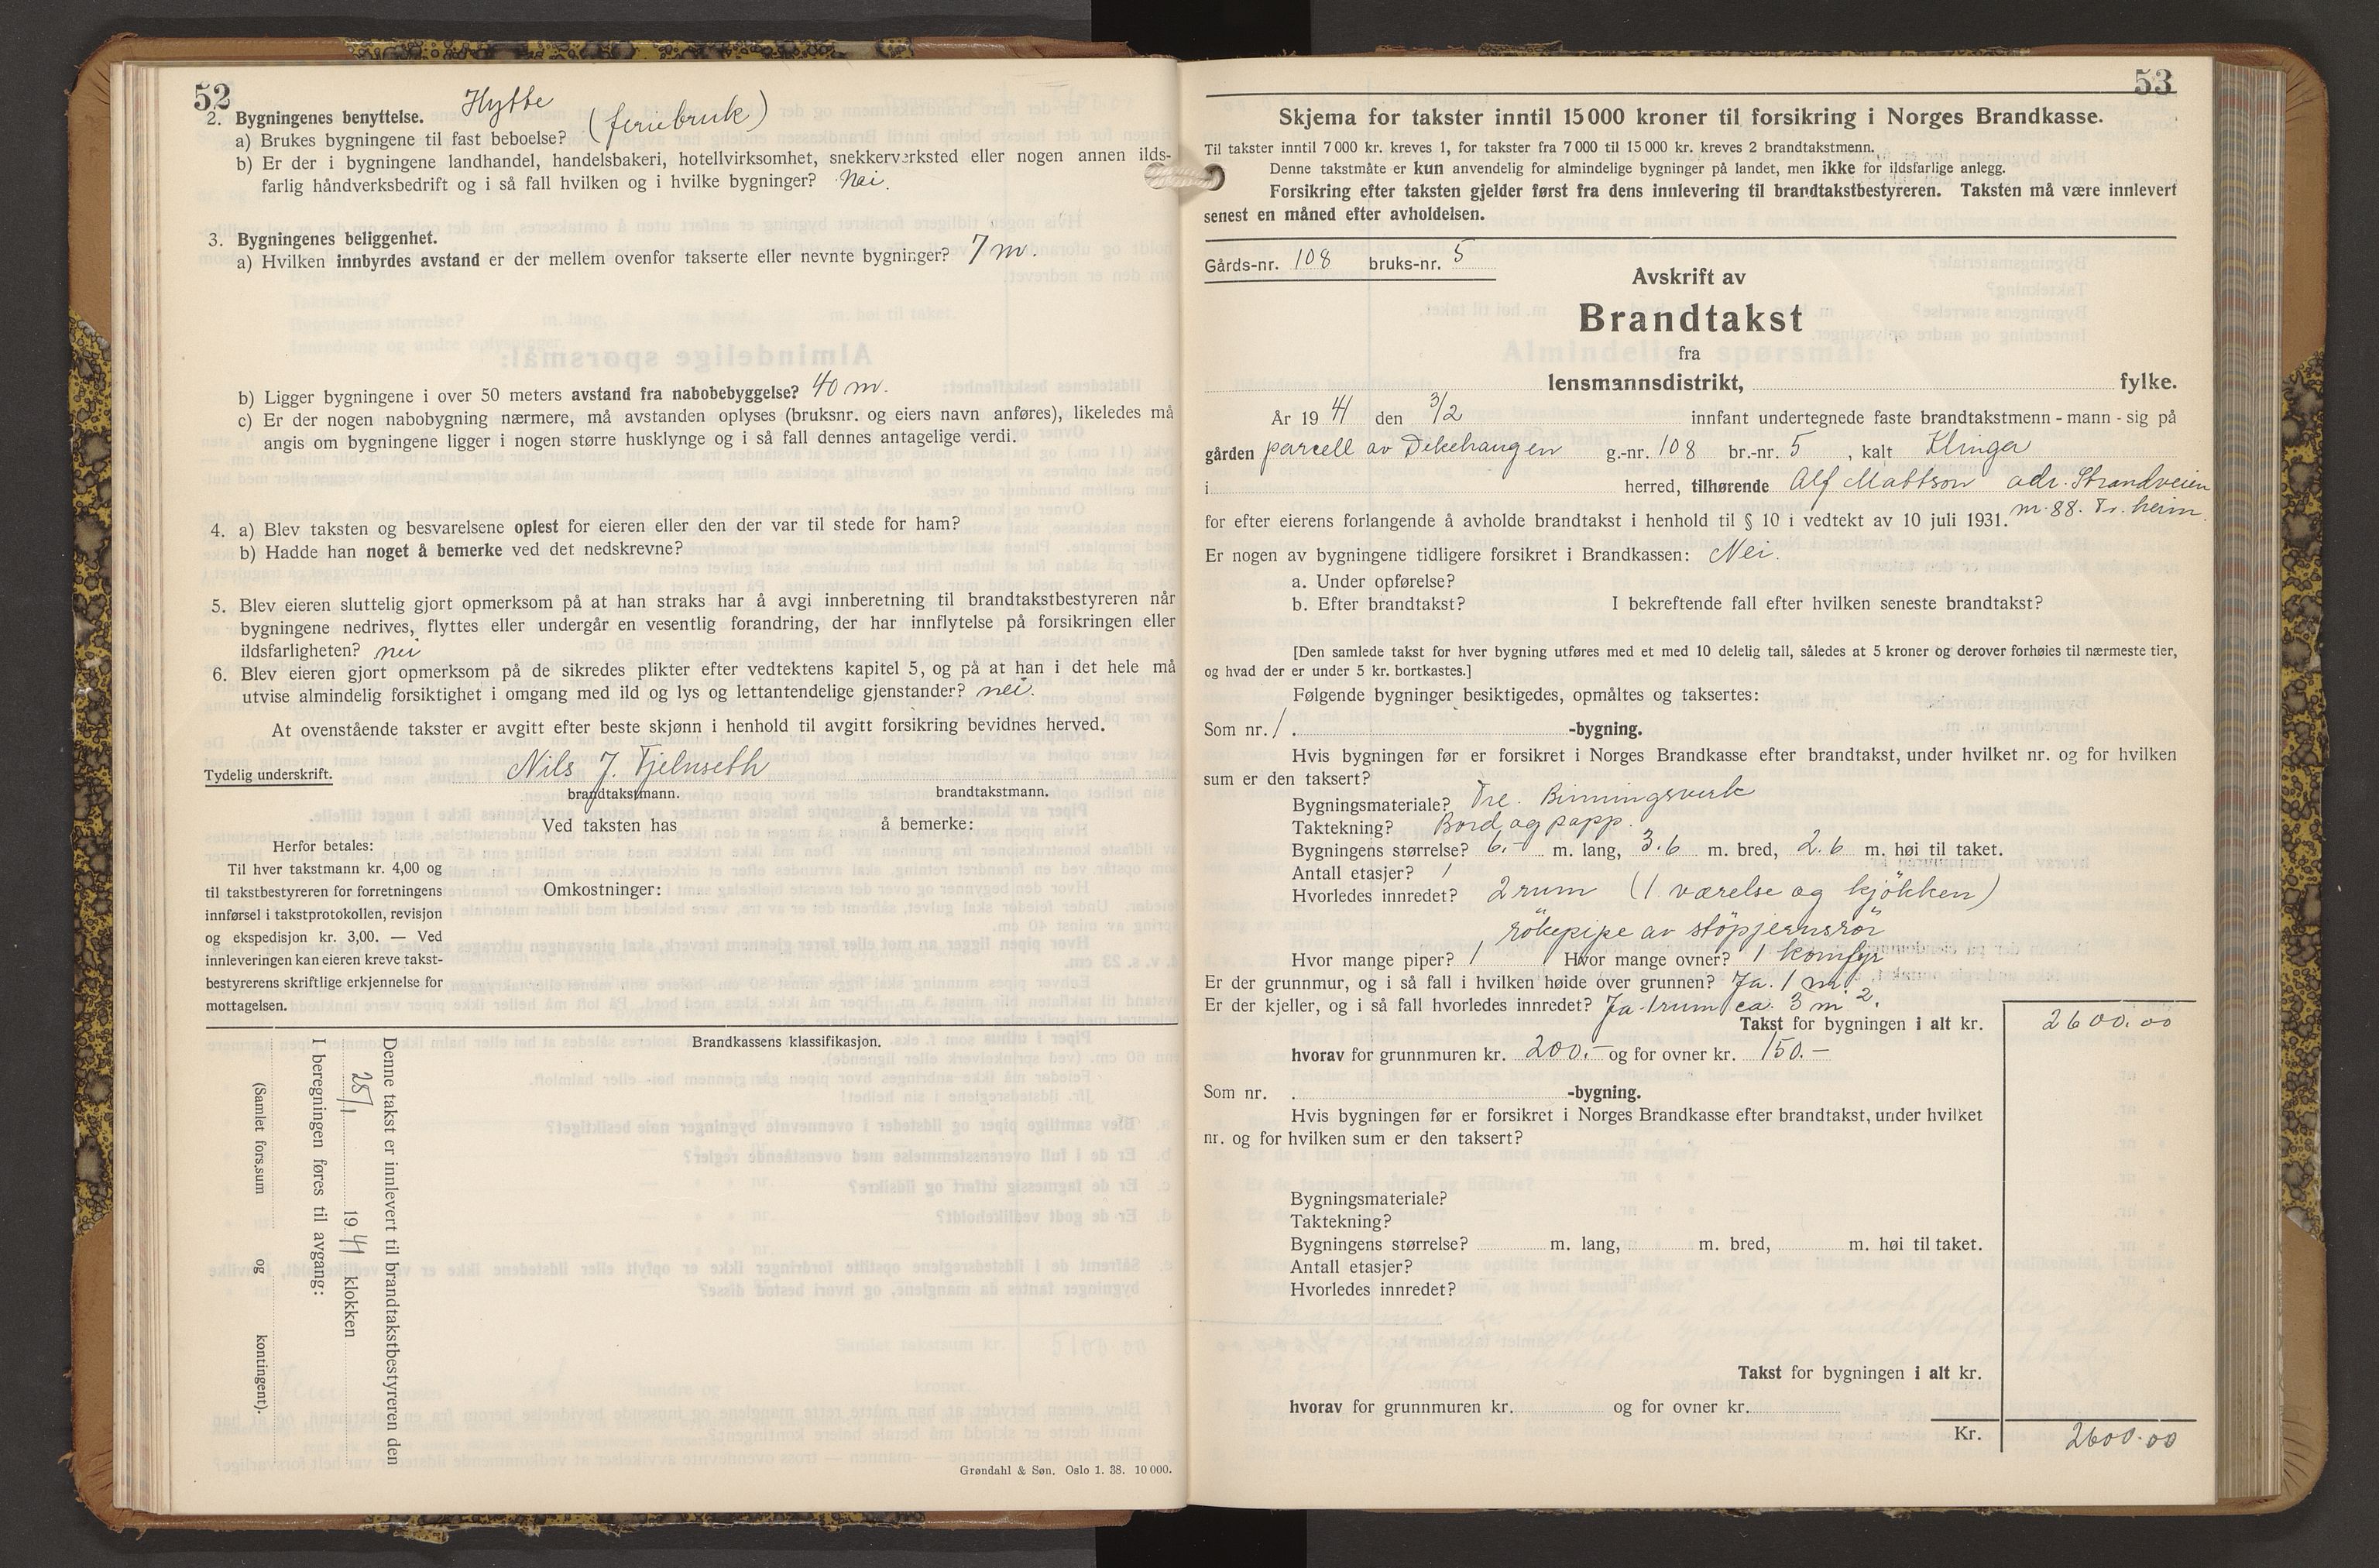 52
2. Bygningenes benyttelse. Hytte
a) Brukes bygningene til fast beboelse? (feriebruk)
b) Er der i bygningene landhandel, handelsbakeri, hotellvirksomhet, snekkerverksted eller nogen annen ilds-
farlig håndverksbedrift og i så fall hvilken og i hvilke bygninger? Nei.
3. Bygningenes beliggenhet.
a) Hvilken innbyrdes avstand er der mellem ovenfor takserte eller nevnte bygninger? 7 m.
b) Ligger bygningene i over 50 meters avstand fra nabobebyggelse? 40 m.
c) Er der nogen nabobygning nærmere, må avstanden oplyses (bruksnr. og eiers navn anføres), likeledes må
angis om bygningene ligger i nogen større husklynge og i så fall dennes antagelige verdi.
4. a) Blev taksten og besvarelsene oplest for eieren eller den der var til stede for ham?
b) Hadde han noget å bemerke ved det nedskrevne?
5. Blev eieren sluttelig gjort opmerksom på at han straks har å avgi innberetning til brandtakstbestyreren når
bygningene nedrives, flyttes eller undergår en vesentlig forandring, der har innflytelse på forsikringen eller
ildsfarligheten? nei
6. Blev eieren gjort opmerksom på de sikredes plikter efter vedtektens kapitel 5, og på at han i det hele må
utvise almindelig forsiktighet i omgang med ild og lys og lettantendelige gjenstander? nei.
At ovenstående takster er avgitt efter beste skjønn i henhold til avgitt forsikring bevidnes herved.
Tydelig underskrift. Nils J. Fjelnseth
brandtakstmann. brandtakstmann.
Ved taksten has å bemerke:
Herfor betales:
Til hver takstmann kr. 4,00 og
til takstbestyreren for forretningens
innførsel i takstprotokollen, revisjon
og ekspedisjon kr. 3,00. — Ved
innleveringen kan eieren kreve takst-
bestyrerens skriftlige erkjennelse for
mottagelsen.
Omkostninger:
Brandkassens klassifikasjon.
Denne takst er innlevert til brandtakstbestyreren den
25/1 1941 klokken
I beregningen føres til avgang:
(Samlet fors.sum og kontingent).
Grøndahl & Søn, Oslo 1. 38. 10 000.
53
Skjema for takster inntil 15 000 kroner til forsikring i Norges Brandkasse.
Til takster inntil 7 000 kr. kreves 1, for takster fra 7 000 til 15 000 kr. kreves 2 brandtakstmenn.
Denne takstmåte er kun anvendelig for almindelige bygninger på landet, men ikke for ildsfarlige anlegg.
Forsikring efter taksten gjelder først fra dens innlevering til brandtakstbestyreren. Taksten må være innlevert
senest en måned efter avholdelsen.
Gårds-nr. 108 bruks-nr. 5
Avskrift av
Brandtakst
fra
lensmannsdistrikt, fylke.
År 1941 den 3/2 innfant undertegnede faste brandtakstmenn - mann - sig på
gården parcell av Dekehaugen g.-nr. 108 br.-nr. 5, kalt Klinga
i herred, tilhørende Alf Mattson adr. Strandveien
m. 88. Tr. heim.
for efter eierens forlangende å avholde brandtakst i henhold til § 10 i vedtekt av 10 juli 1931.
Er nogen av bygningene tidligere forsikret i Brandkassen: Nei.
a. Under opførelse?
b. Efter brandtakst? I bekreftende fall efter hvilken seneste brandtakst?
[Den samlede takst for hver bygning utføres med et med 10 delelig tall, således at 5 kroner og derover forhøies til nærmeste tier,
og hvad der er under 5 kr. bortkastes.]
Følgende bygninger besiktigedes, opmåltes og taksertes:
Som nr. 1. -bygning.
Hvis bygningen før er forsikret i Norges Brandkasse efter brandtakst, under hvilket nr. og for hvilken
sum er den taksert?
Bygningsmateriale? Tre. Binningsverk
Taktekning? Bord og papp.
Bygningens størrelse? 6.- m. lang, 3.6 m. bred, 2.6 m. høi til taket.
Antall etasjer? 1
Hvorledes innredet? 2 rum (1 værelse og kjökken)
rökepipe av stöpjernsrör
Hvor mange piper? 1 Hvor mange ovner? 1 komfyr
Er der grunnmur, og i så fall i hvilken høide over grunnen? Ja. 1 m.
Er der kjeller, og i så fall hvorledes innredet? Ja 1 rum ca. 3 m².
Takst for bygningen i alt kr. 2600.00
hvorav for grunnmuren kr. 200.- og for ovner kr. 150.-
Som nr. . -bygning.
Hvis bygningen før er forsikret i Norges Brandkasse efter brandtakst, under hvilket
nr. og for hvilken sum er den taksert?
Bygningsmateriale?
Taktekning?
Bygningens størrelse? m. lang, m. bred, m. høi til taket.
Antall etasjer?
Hvorledes innredet?
Takst for bygningen i alt kr.
hvorav for grunnmuren kr. og for ovner kr.
Kr. 2600.00